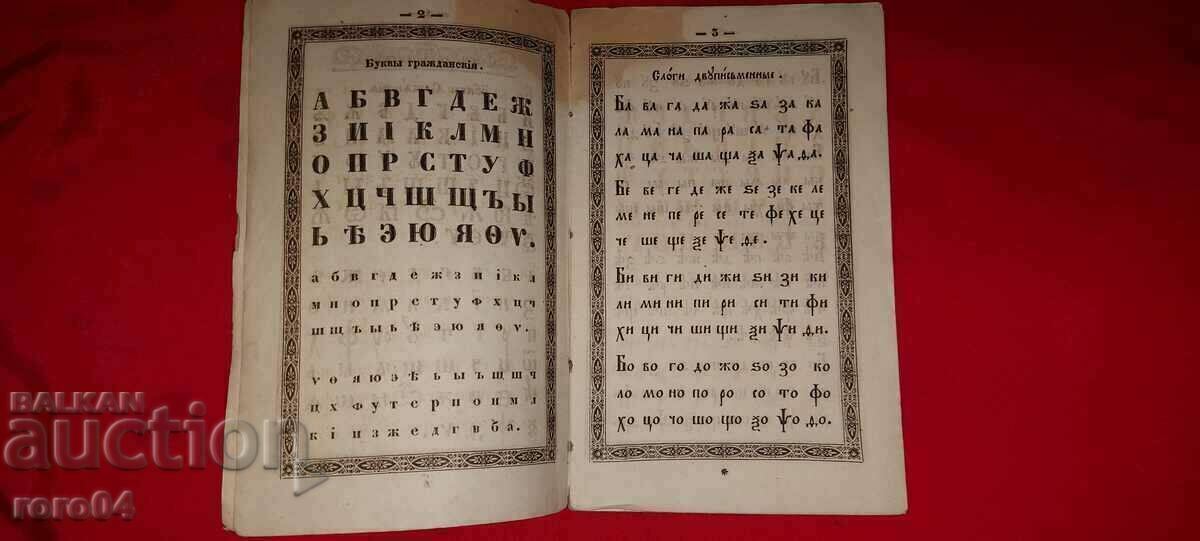 — 2 —
Буквы гражданскія.
А Б В Г Д Е Ж
З И І К Л М Н
О П Р С Т У Ф
Х Ц Ч Ш Щ Ъ Ы
Ь Ѣ Э Ю Я Ѳ Ѵ.
а б в г д е ж з и і к л
м н о п р с т у ф х ц ч
ш щ ъ ы ь ѣ э ю я ѳ ѵ.
ѵ ѳ я ю э ѣ ь ы ъ щ ш ч
ц х ф у т с р п о н м л
к і и з ж е д г в б а.
— 3 —
Сло́ги двꙋпи́сьменные.
Ба ва га да жа ѕа за ка
ла ма на па ра са та фа
ха ца ча ша ща ѯа ѱа ѳа.
Бе ве ге де же ѕе зе ке ле
ме не пе ре се те фе хе це
че ше ще ѯе ѱе ѳе.
Би ви ги ди жи ѕи зи ки
ли ми ни пи ри си ти фи
хи ци чи ши щи ѯи ѱи ѳи.
Бо во го до жо ѕо зо ко
ло мо но по ро со то фо
хо цо чо шо що ѯо ѱо ѳо.
*
BALKAN
auction
roro04